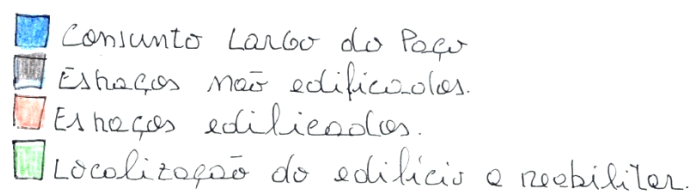 Conjunto Largo do Paço
Espaços não edificados.
Espaços edificados.
Localização do edifício a reabilitar.